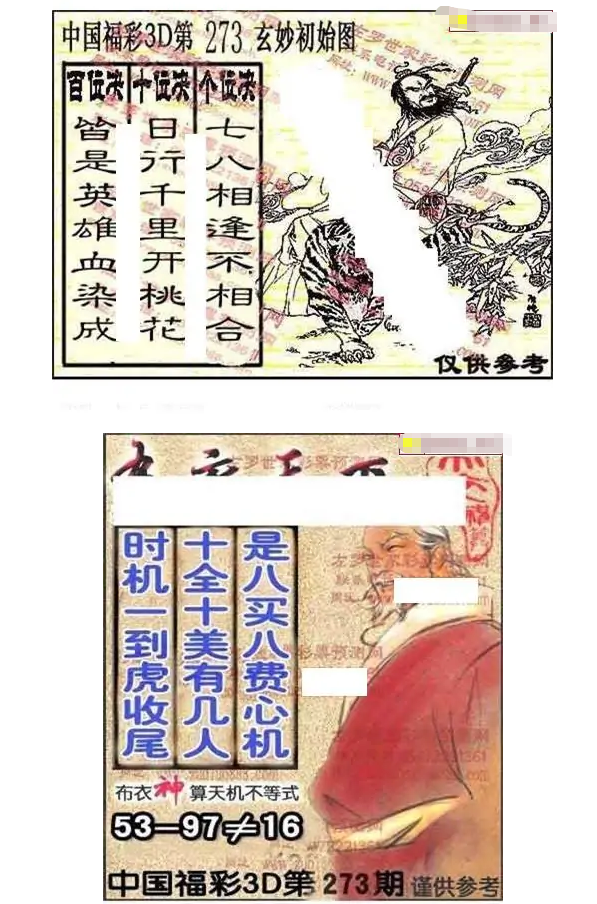 中国福彩3D第 273 玄妙初始图
百位决 十位决 个位决
七八相逢不相合
日行千里开桃花
皆是英雄血染成
仅供参考
是八买八费心机
十全十美有几人
时机一到虎收尾
布衣神算天机不等式
53—97≠16
中国福彩3D第273期 谨供参考